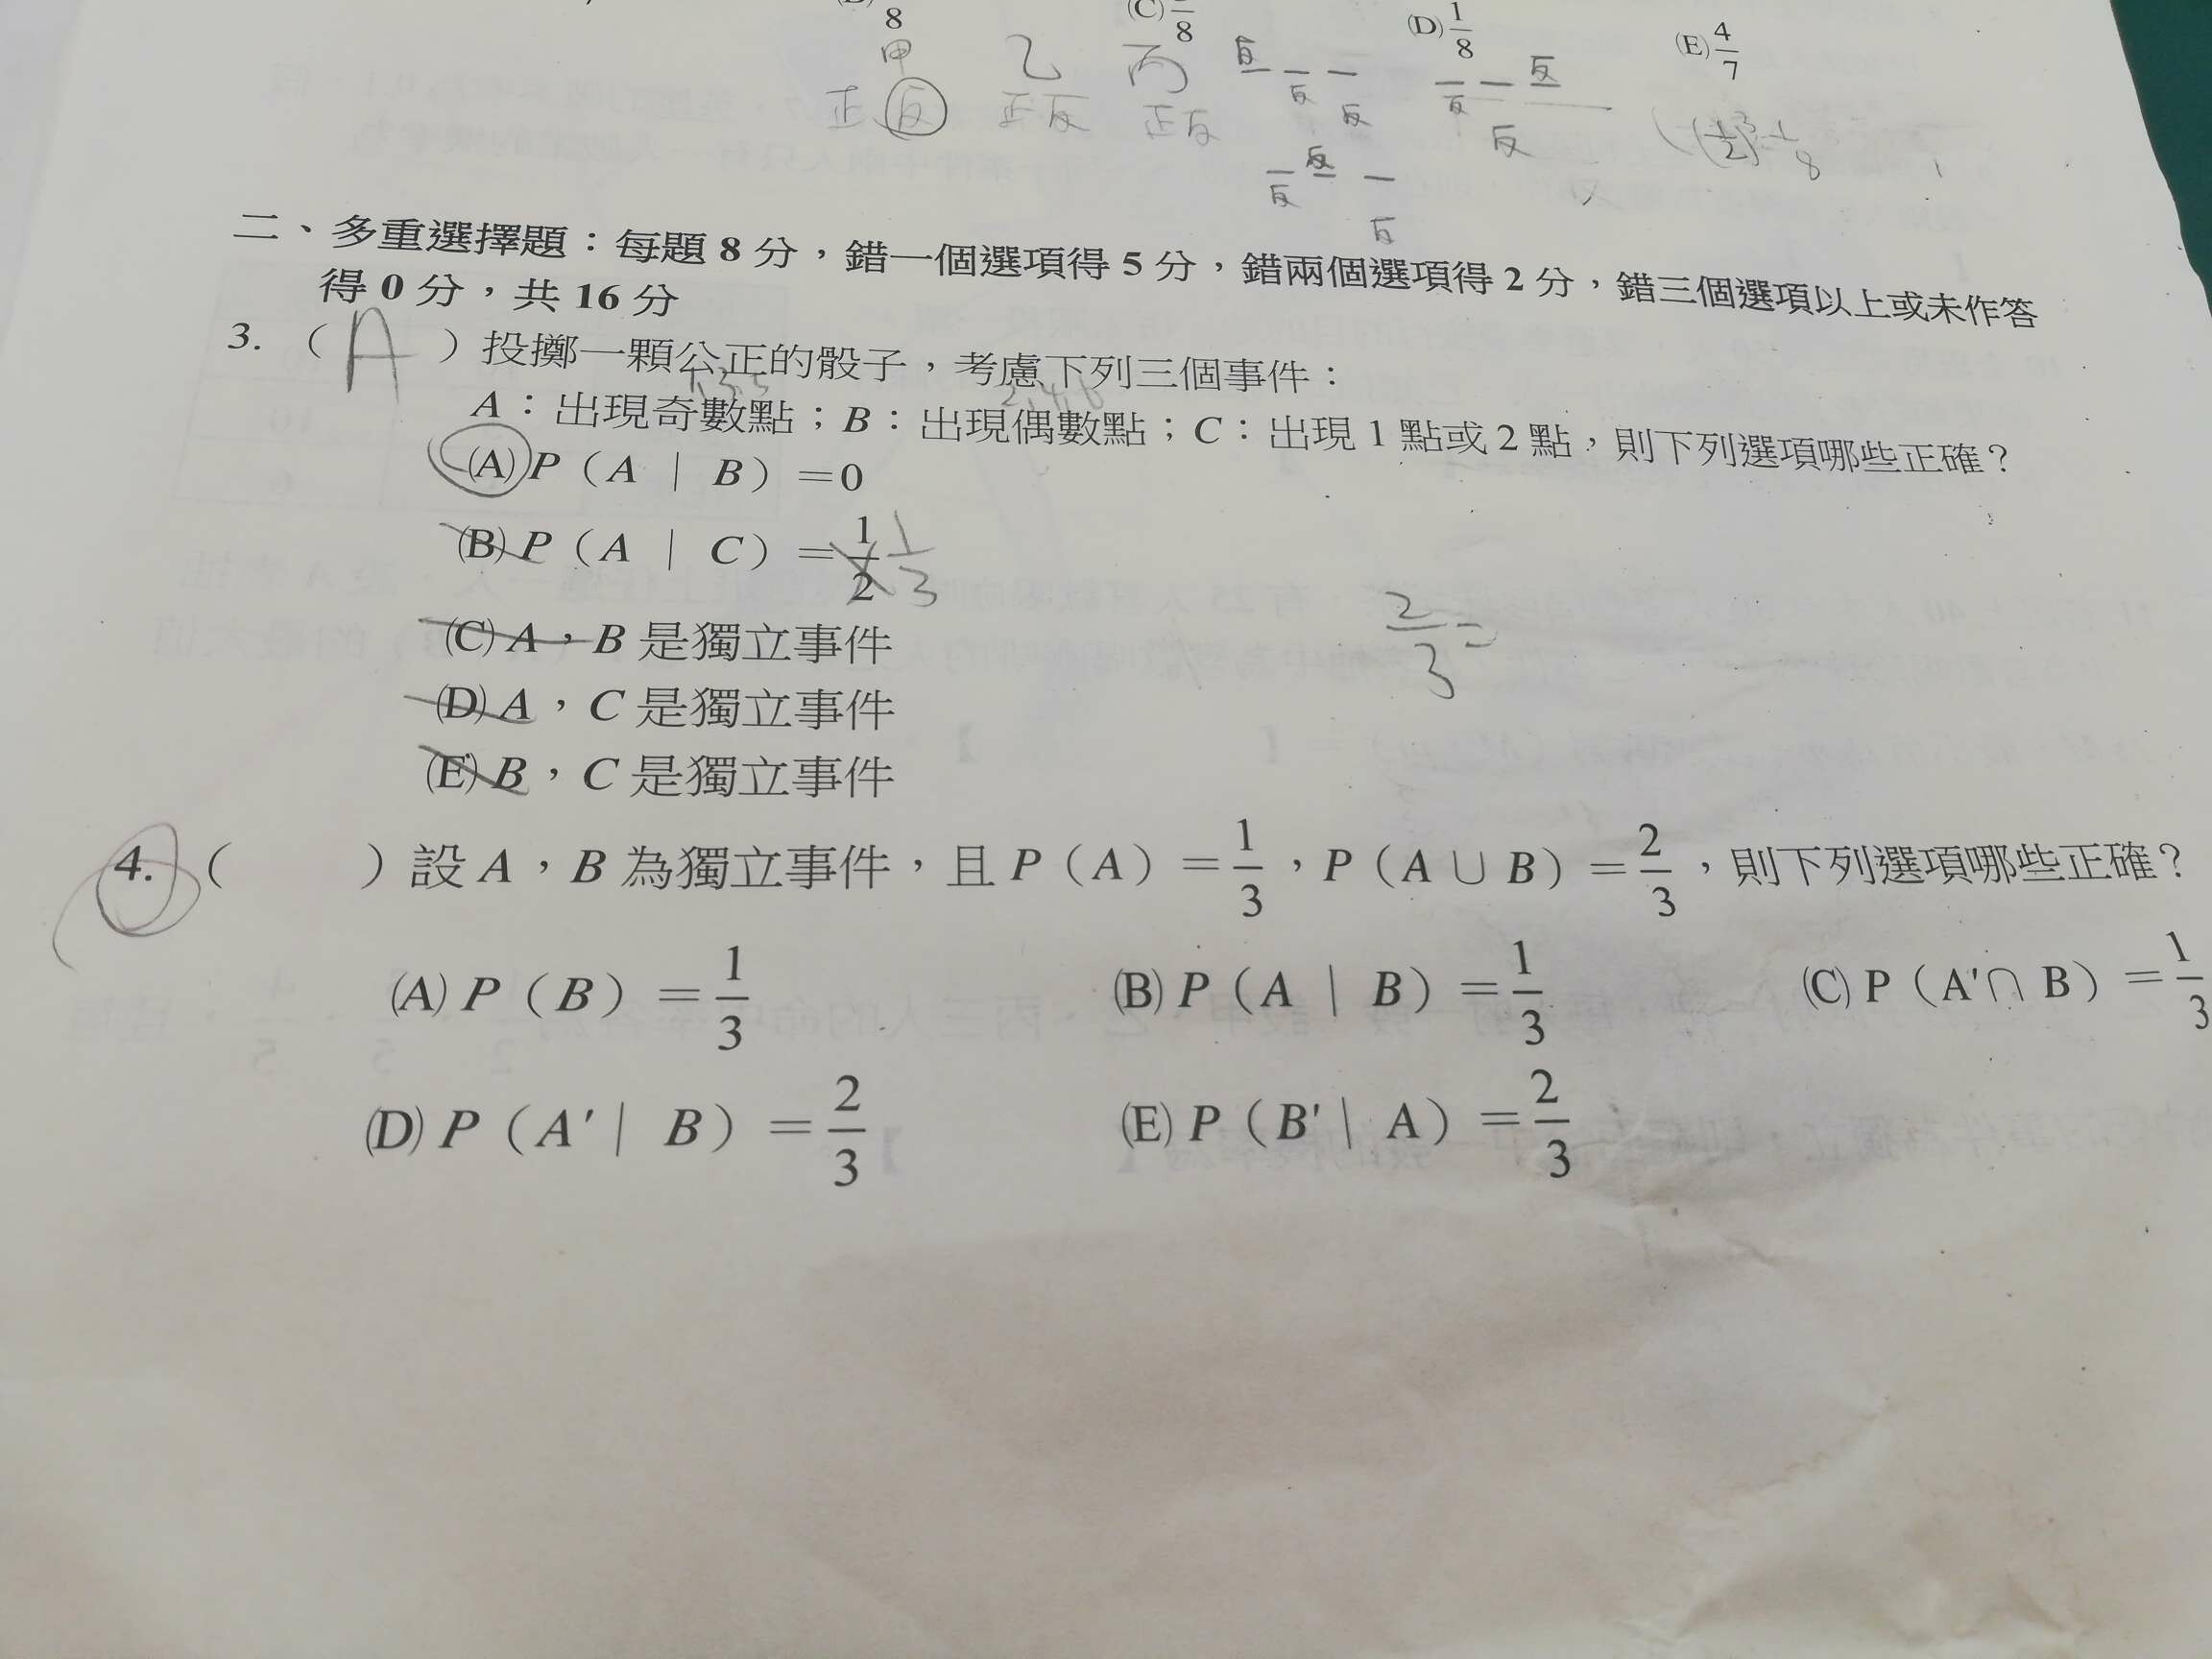 8 (C) 8 (D) 1/8 (E) 4/7
甲 乙 丙 反 反
正 反 正 反 正 反 反 反 反 反 (1/2)³=1/8
反 反 反
二、多重選擇題：每題 8 分，錯一個選項得 5 分，錯兩個選項得 2 分，錯三個選項以上或未作答
得 0 分，共 16 分
3. （ A ）投擲一顆公正的骰子，考慮下列三個事件：
1,3,5 2,4,6
A：出現奇數點；B：出現偶數點；C：出現 1 點或 2 點，則下列選項哪些正確？
(A) P（A｜B）=0
(B) P（A｜C）=1/2 1/3
(C) A，B 是獨立事件
2/3=
(D) A，C 是獨立事件
(E) B，C 是獨立事件
4. （ ）設 A，B 為獨立事件，且 P（A）=1/3，P（A∪B）=2/3，則下列選項哪些正確？
(A) P（B）=1/3 (B) P（A｜B）=1/3 (C) P（A′∩B）=1/3
(D) P（A′｜B）=2/3 (E) P（B′｜A）=2/3